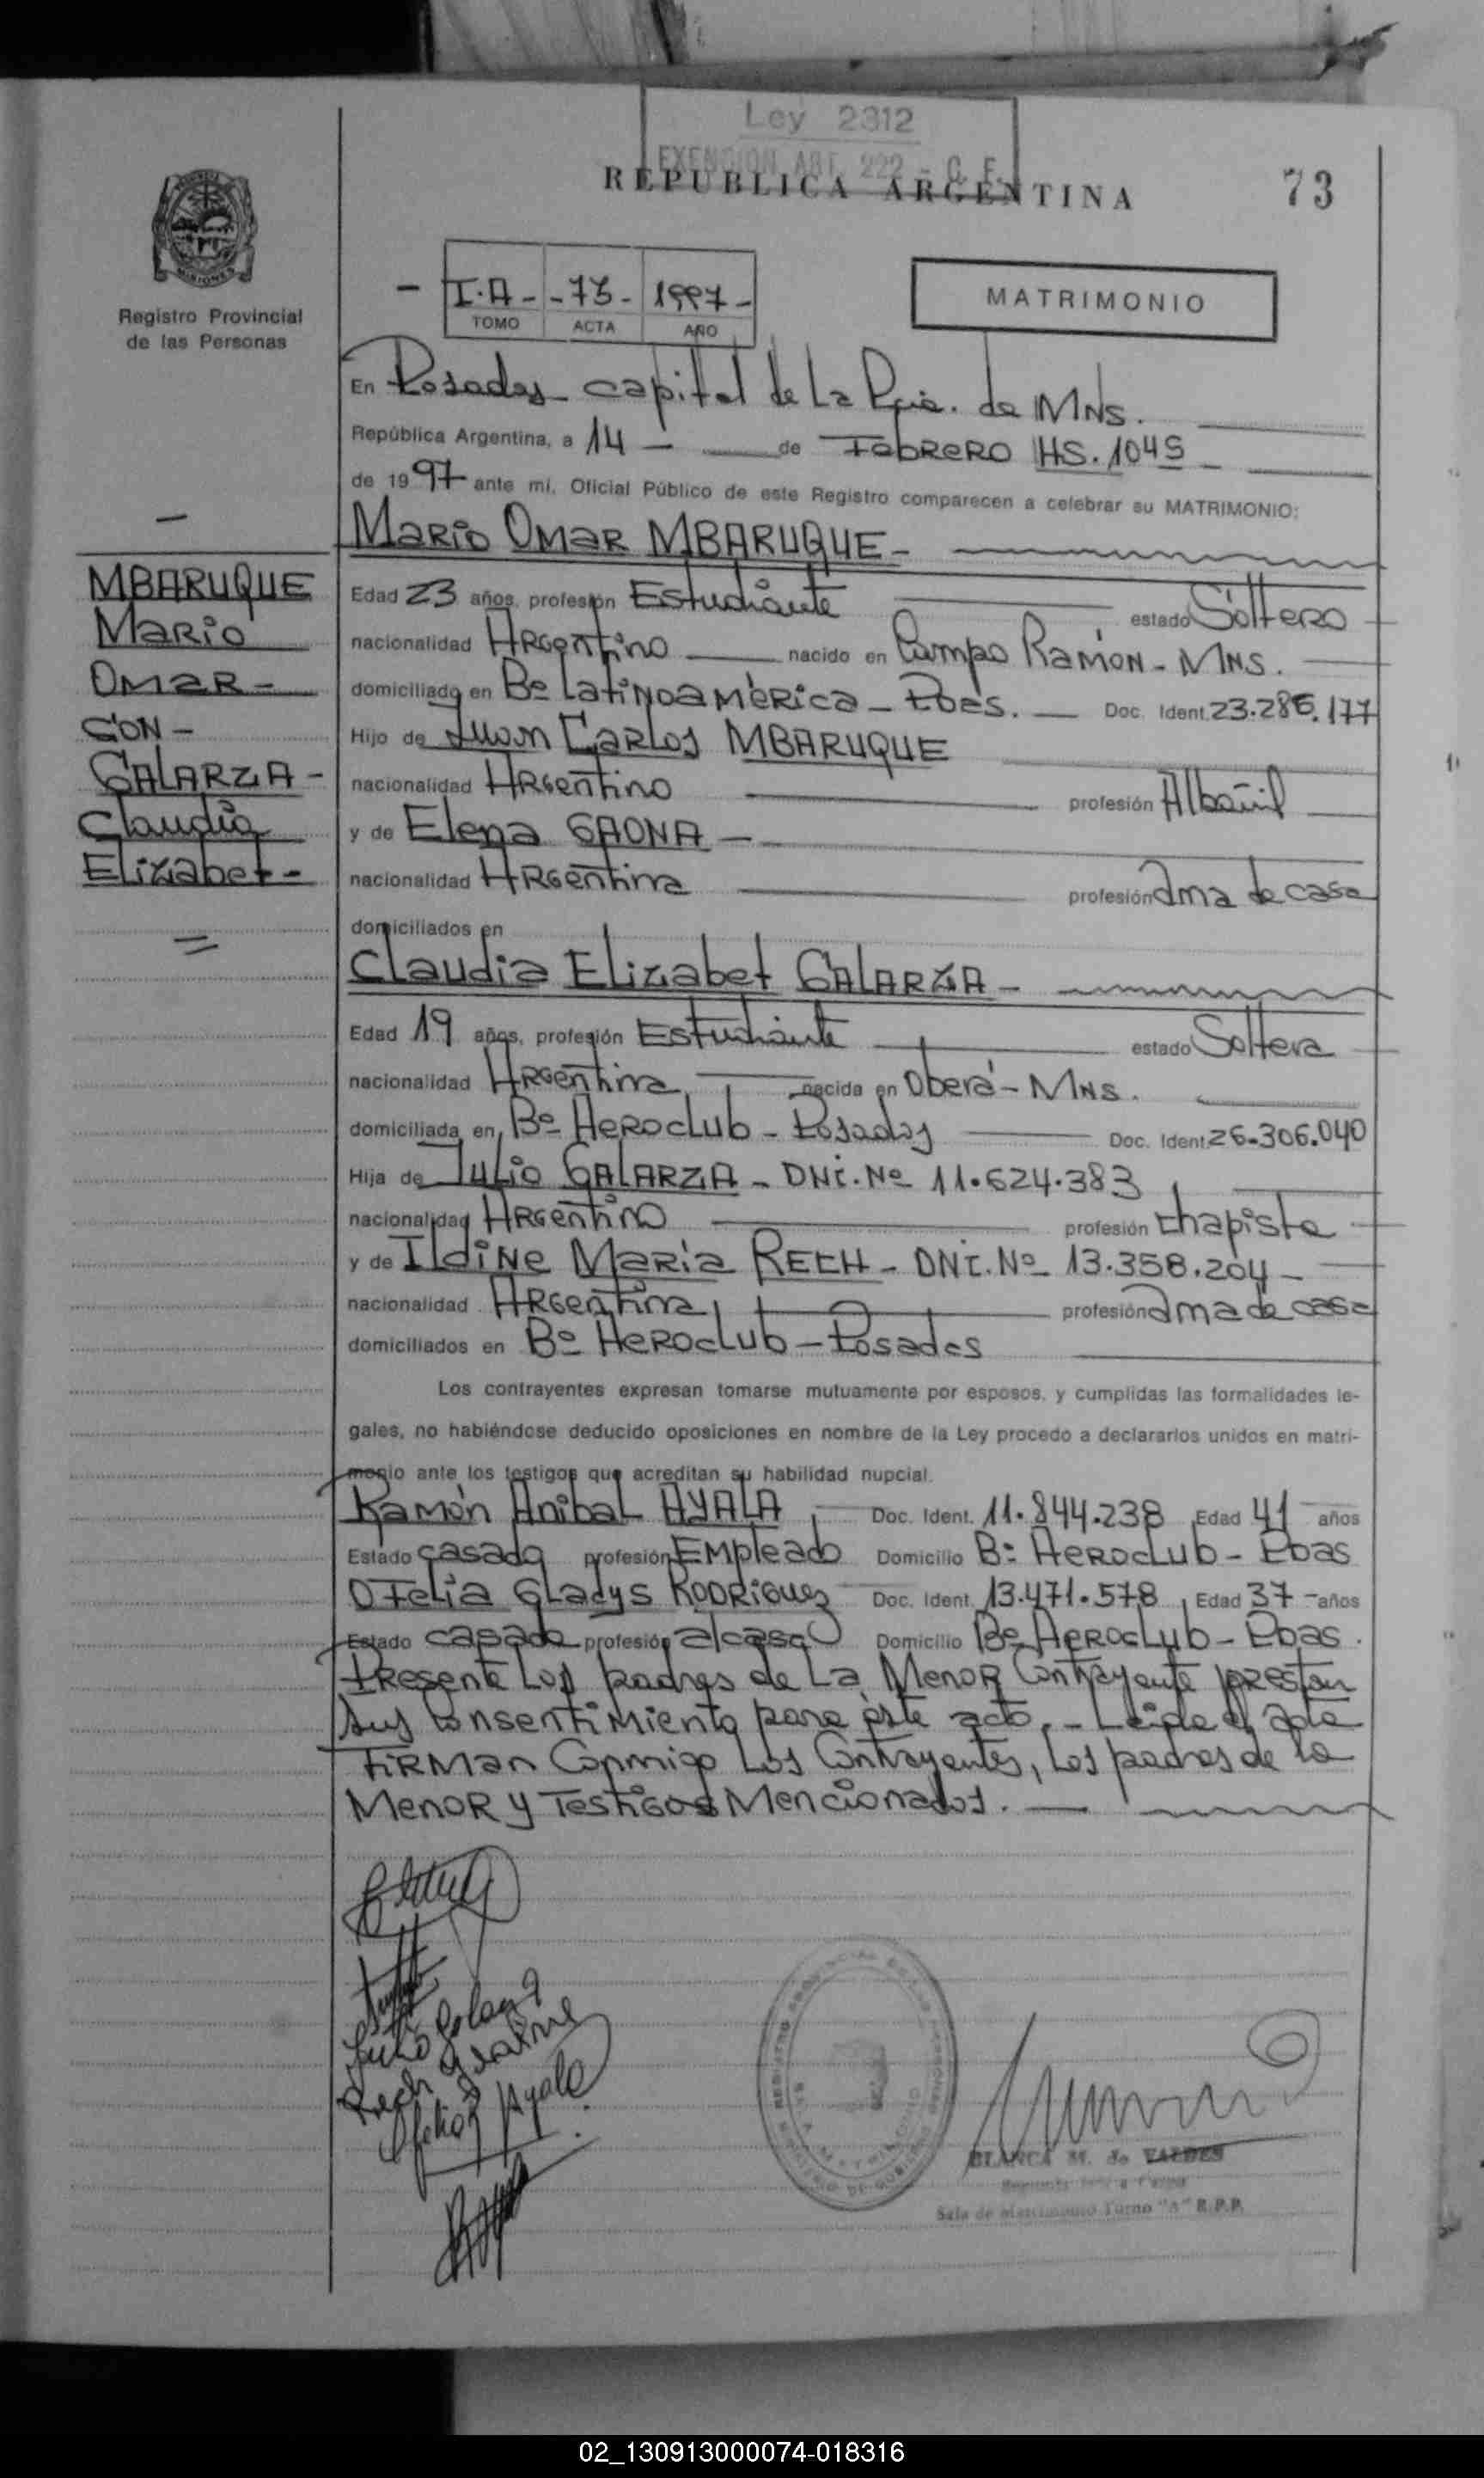 Ley 2312
EXENCION ART. 222 - C. F.
REPUBLICA ARGENTINA
73
MISIONES
Registro Provincial
de las Personas
- I.A - - 73 - 1997 -
TOMO ACTA AÑO
MATRIMONIO
En Posadas capital de La Pcia. de MNS.
República Argentina, a 14 - de Febrero HS. 1045
de 1997 ante mí, Oficial Público de este Registro comparecen a celebrar su MATRIMONIO:
Mario Omar MBARUQUE -
MBARUQUE
Mario
Omar -
CON -
GALARZA -
Claudia
Elizabet -
Edad 23 años, profesión Estudiante estado Soltero
nacionalidad Argentino nacido en Campo Ramón - MNS.
domiciliado en Bº Latinoamérica - Pdas. Doc. Ident. 23.286.177
Hijo de Juan Carlos MBARUQUE
nacionalidad Argentino profesión Albañil
y de Elena GAONA -
nacionalidad Argentina profesión Ama de casa
domiciliados en
Claudia Elizabet GALARZA -
Edad 19 años, profesión Estudiante estado Soltera
nacionalidad Argentina nacida en Oberá - MNS.
domiciliada en Bº Aeroclub - Posadas Doc. Ident. 26.306.040
Hija de Julio GALARZA - DNI. Nº 11.624.383
nacionalidad Argentino profesión chapista
y de Ildine María RECH - DNI. Nº 13.358.204 -
nacionalidad Argentina profesión Ama de casa
domiciliados en Bº Aeroclub - Posadas
Los contrayentes expresan tomarse mutuamente por esposos, y cumplidas las formalidades le-
gales, no habiéndose deducido oposiciones en nombre de la Ley procedo a declararlos unidos en matri-
monio ante los testigos que acreditan su habilidad nupcial.
Ramón Anibal AYALA Doc. Ident. 11.844.238 Edad 41 años
Estado casado profesión Empleado Domicilio Bº Aeroclub - Pdas
Ofelia Gladys RODRIGUEZ Doc. Ident. 13.471.578 Edad 37 - años
Estado casada profesión a/casa Domicilio Bº Aeroclub - Pdas.
Presente Los padres de La Menor Contrayente prestan
sus Consentimiento para este acto. - Leida el acta
Firman Conmigo Los Contrayentes, Los padres de la
Menor y Testigos Mencionados.
Julio Galarza
Rech Ildine
Ofelia Ayala
BLANCA M. de VALDES
Sala de Matrimonio Turno "A" R.P.P.
02_130913000074-018316